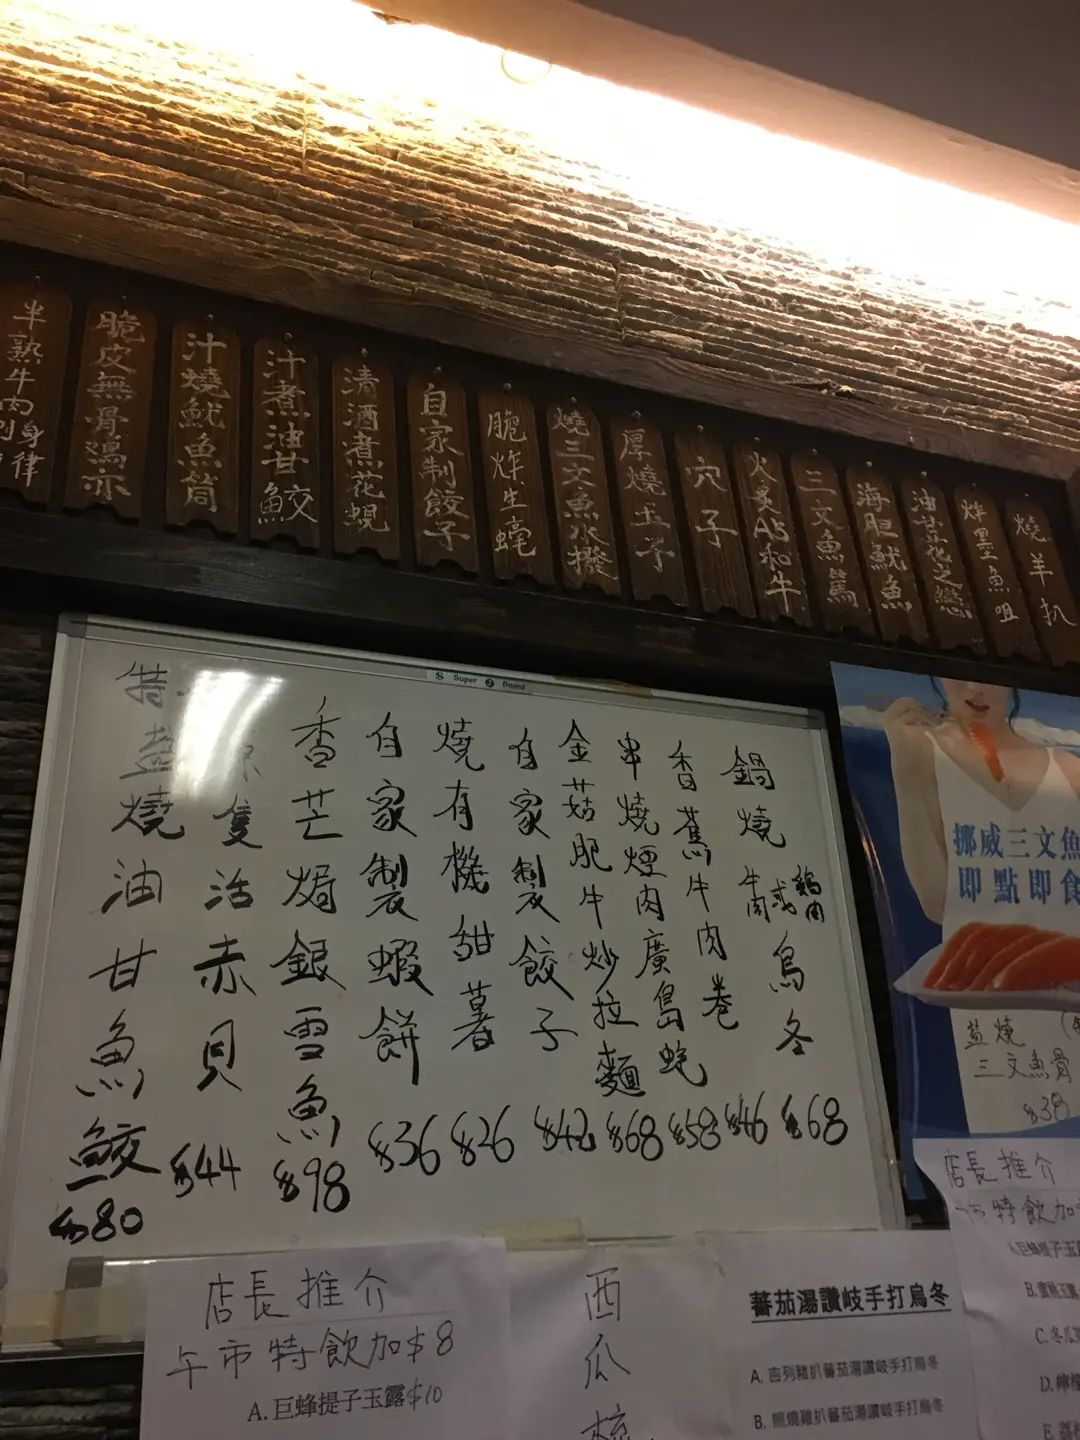 半熟牛肉身
脆皮無骨鴻亦
汁燒魷魚筒
汁煮油甘鮫
清酒煮花蜆
自家制餃子
脆炸生蠔
燒三文魚水撥
厚燒玉子
穴子
火炙A5和牛
三文魚
海胆魷魚
油甘花之戀
炸墨魚咀
燒羊扒
Super Board
特
鹽燒油甘魚鮫
$80
隻活赤貝
$44
香芒焗銀雪魚
$98
自家製蝦餅
$36
燒有機甜薯
$26
自家製餃子
$42
金菇肥牛炒拉麵
$68
串燒煙肉廣島蚝
$58
香蕉牛肉卷
$46
鍋燒牛肉或鷄肉烏冬
$68
挪威三文魚
即點即食
盐燒
三文魚骨
$38
店長推介
午市特飲加$8
A.巨蜂提子玉露$10
西瓜梳
蕃茄湯讚岐手打烏冬
A. 吉列豬扒蕃茄湯讚岐手打烏冬
B. 照燒雞扒蕃茄湯讚岐手打烏冬
店長推介
午市特飲加
A.巨蜂提子玉露
B.
C.冬瓜
D.檸檬
E.